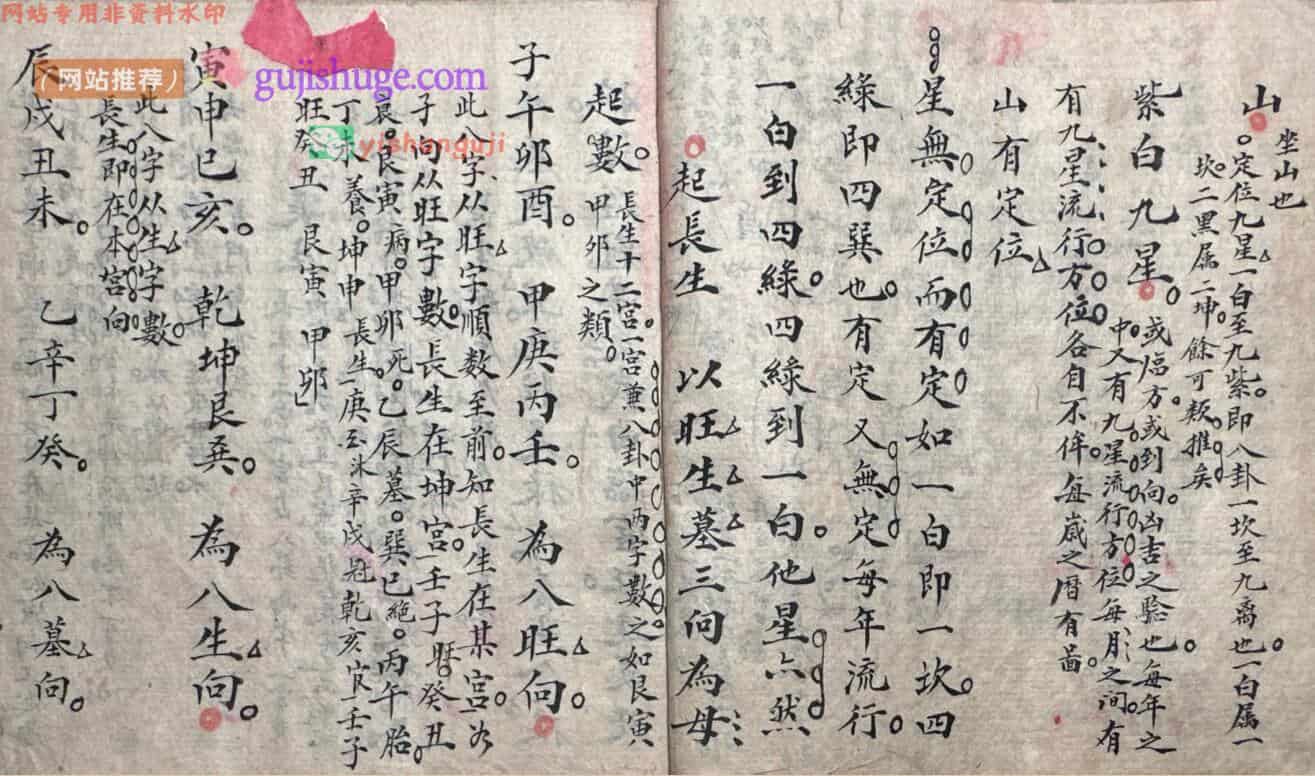 网站专用非资料水印
（网站推荐）
gujishuge.com
yishanguji
山。坐山也
定位九星一白至九紫。即八卦一坎至九离也。一白属一
坎。二黑属二坤。餘可類推矣
紫白九星。或临方。或到向。凶吉之騐也。每年之
中。又有九星流行方位。每月之间。有
有九星流行方位各自不侔。每歲之曆有啚。
山有定位
星無定位。而有定如一白即一坎。四
緑即四巽也。有定又無定。每年流行。
一白到四緑。四緑到一白。他星亦然
起長生 以旺生墓三向為母
起數。長生十二宮。一宮兼八卦中两字數之。如艮寅
甲卯之類。
子午卯酉。 甲庚丙壬。 為八旺向。
此八字从旺字順数至前。知長生在某宮。如
子向从旺字數。長生在坤宮。壬子癸丑
衰。艮寅病。甲卯死。乙辰墓。巽巳絶。丙午胎。
丁未養。坤申長生。庚酉沐辛戌冠乾亥官壬子
旺癸丑 艮寅 甲卯
寅申巳亥。 乾坤艮巽。 為八生向。
此八字从生字數。
長生即在本宮向
辰戌丑未。 乙辛丁癸。 為八墓向。